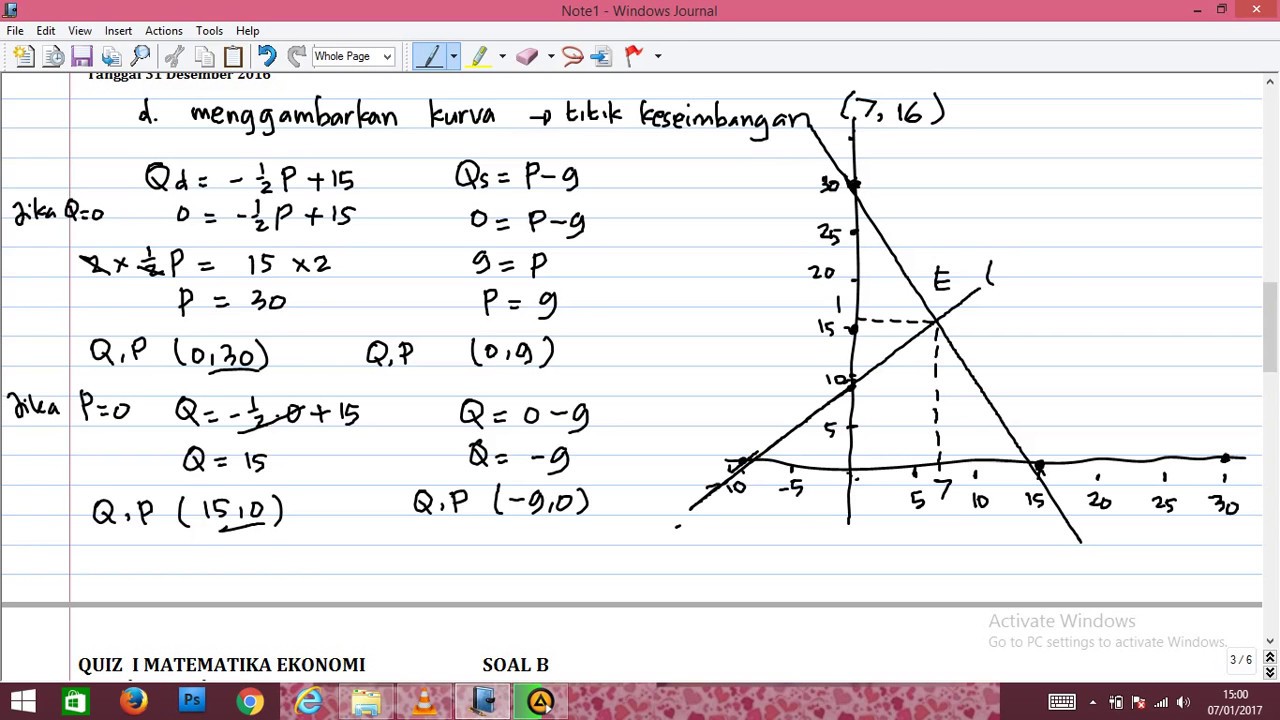 Note1 - Windows Journal
File Edit View Insert Actions Tools Help
Whole Page
Tanggal 31 Desember 2016
d. menggambarkan kurva → titik keseimbangan (7, 16)
Qd = -½P + 15 Qs = P-9
Jika Q=0 0 = -½P + 15 0 = P-9
2 × ½P = 15 × 2 9 = P
P = 30 P = 9
Q,P (0,30) Q,P (0,9)
Jika P=0 Q = -½.0 + 15 Q = 0-9
Q = 15 Q = -9
Q,P (15,0) Q,P (-9,0)
30
25
20
15
10
5
E
-10 -5 5 7 10 15 20 25 30
QUIZ I MATEMATIKA EKONOMI SOAL B
Activate Windows
Go to PC settings to activate Windows.
3 / 6
Ps
15:00
07/01/2017